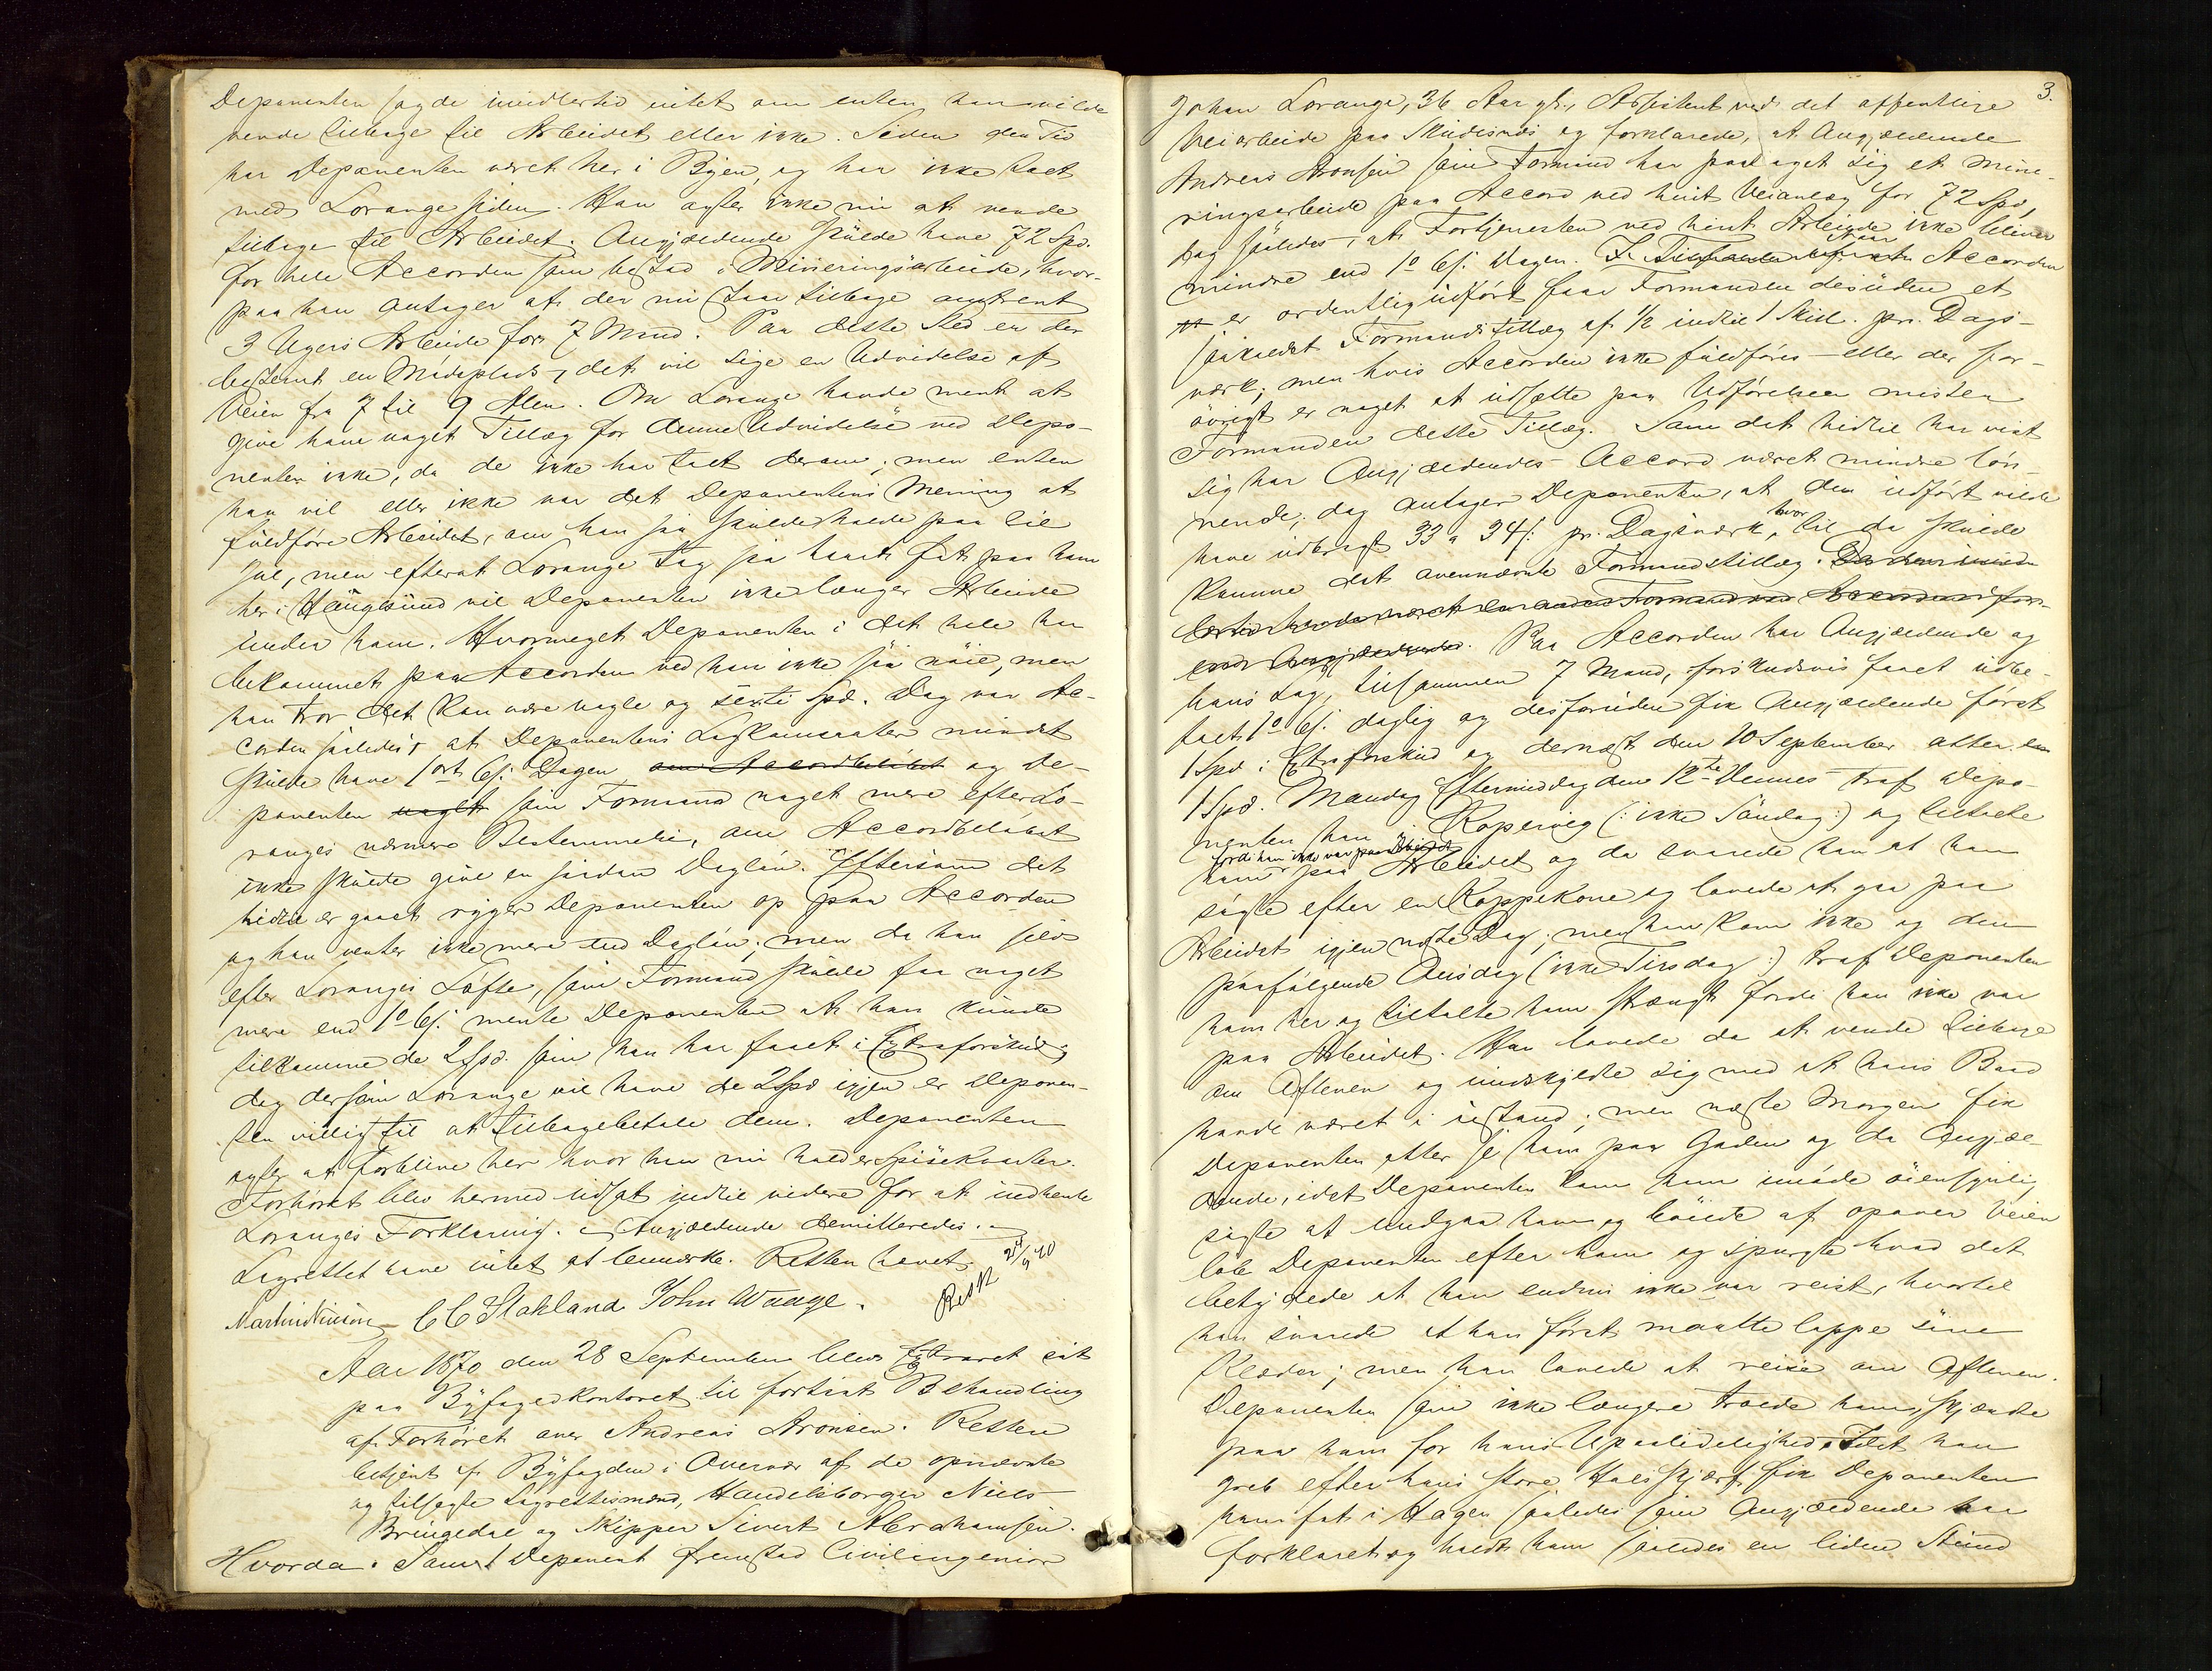 Deponenten sagde imidlertid intet om enten han vilde
vende tilbage til Arbeidet eller ikke. Siden den Tid
har Deponenten været her i Byen, og har ikke talt
med Lorange siden. Han agter ikke nu at vende
tilbage til Arbeidet. Angjældende skulde have 72 Spd.
for hele Accorden som bestod i Mineringsarbeide, hvor-
paa han antager at der nu staar tilbage omtrent
3 Ugers Arbeide for 7 Mand. Paa dette Sted er der
bestemt en Mødeplads, det vil sige en Udvidelse af
Veien fra 7 til 9 Alen. Om Lorange havde ment at
give ham noget Tillæg for denne Udvidelse ved Depo-
nenten ikke, da de ikke har talt derom; men enten
han vil eller ikke var det Deponentens Mening at
fuldføre Arbeidet, om han saa skulde holde paa til
Jul, men efterat Lorange tog saa haardt fat paa ham
her i Haugesund vil Deponenten ikke længer Arbeide
under ham. Hvormeget Deponenten i det hele har
bekommet paa Accorden ved han ikke saa nøie, men
han tror det kan være nogle og sexti Spd. Dog var Ac-
corden saaledes, at Deponentens Lagkamerater mindst
skulde have 1 ort 6 s. Dagen om Accordbeløbet og De-
ponenten noget som Formand noget mere efter Lo-
ranges nærmere Bestemmelse, om Accordbeløbet
ikke skulde give en saadan Dagløn. Eftersom det
hidtil er gaaet ryger Deponenten op paa Accorden
og han venter ikke mere end Dagløn; men da han selv
efter Loranges Løfte, som Formand skulde faa noget
mere end 1 o 6 s. mente Deponenten at han kunde
tilkomme de 2 Spd. som han har faaet i Extraforskud;
dog dersom Lorange vil have de 2 Spd igjen er Deponen-
ten villig til at tilbagebetale dem. Deponenten
agter at forblive her hvor han nu holder Spisekvarter.
Forhøret blev hermed udsat indtil videre for at indhente
Loranges Forklaring. Angjældende demitteredes.
Lagrettet havde intet at bemærke. Retten hævet.
Martin Nilson C C Stokland John Waage.
Aar 1870 den 28 September blev Extraret sat
paa Byfogedkontoret til fortsat Behandling
af Forhøret over Andreas Aronsen. Retten
betjent af Byfogden i Overvær af de opnævnte
og tilsagte Lagrettesmænd, Handelsborger Niels
Bringedal og Skipper Sivert Abrahamsen.
Hvorda. Som 1 Deponent fremstod Civilingeniør
3.
Johan Lorange, 36 Aar gl., Assistent ved det offentlige
Veiarbeide paa Skudesnæs og forklarede, at Angjældende
Andreas Aronsen som Formand har paataget sig et Mine-
ringsarbeide paa Accord ved hint Veianlæg for 72 Spd,
dog saaledes, at Fortjenesten ved hint Arbeide ikke bliver
mindre end 1 o 6 s. Dagen. Naar Accorden
er ordentlig udført faar Formanden desuden et
saakaldet Formandstillæg af 1/2 indtil 1 Skill. pr. Dags-
værk; men hvis Accorden ikke fuldføres eller der for-
øvrigt er noget at udsætte paa Udførelsen mister
Formanden dette Tillæg. Som det hidtil har vist
sig har Angjældendes Accord været mindre løn-
nende; dog antager Deponenten, at den udført vilde
have udbragt 33 a 34 s. pr. Dagsværk, hvortil da skulde
komme det ovennævnte Formandstillæg.
Paa Accorden har Angjældende og
hans Lag, tilsammen 7 Mand, forskudsvis faaet udbe-
talt 1 o 6 s. daglig og desforuden fik Angjældende først
1 Spd i Extraforskud og dernæst den 10 September atter en
1 Spd. Mandag Eftermiddag den 12te Dennes traf Depo-
nenten ham i Kopervig (: ikke Søndag :) og tiltalte
ham fordi han ikke var paa Arbeidet og da svarede han at han
søgte efter en Koppekone og lovede at gaa paa
Arbeidet igjen næste Dag; men han kom ikke og den
paafølgende Onsdag (ikke Tirsdag :) traf Deponenten
ham her og tiltalte ham strængt fordi han ikke var
paa Arbeidet. Han lovede da at vende tilbage
om Aftenen og undskyldte sig med at hans Baad
havde været i ustand; men næste Morgen fik
Deponenten atter se ham paa Gaden og da Angjæl-
dende, idet Deponenten kom ham imøde øiensynlig
søgte at undgaa ham og bøiede af opover Veien
løb Deponenten efter ham og spurgte hvad det
betydede at han endnu ikke var reist, hvortil
han svarede at han først maatte lappe sine
Klæder; men han lovede at reise om Aftenen.
Deponenten som ikke længere troede ham, skjændte
paa ham for hans Upaalidelighed. Idet han
greb efter hans store Halsskjærf, fik Deponenten
ham fat i Hagen saaledes som Angjældende har
forklaret og holdt ham saaledes en liden Stund